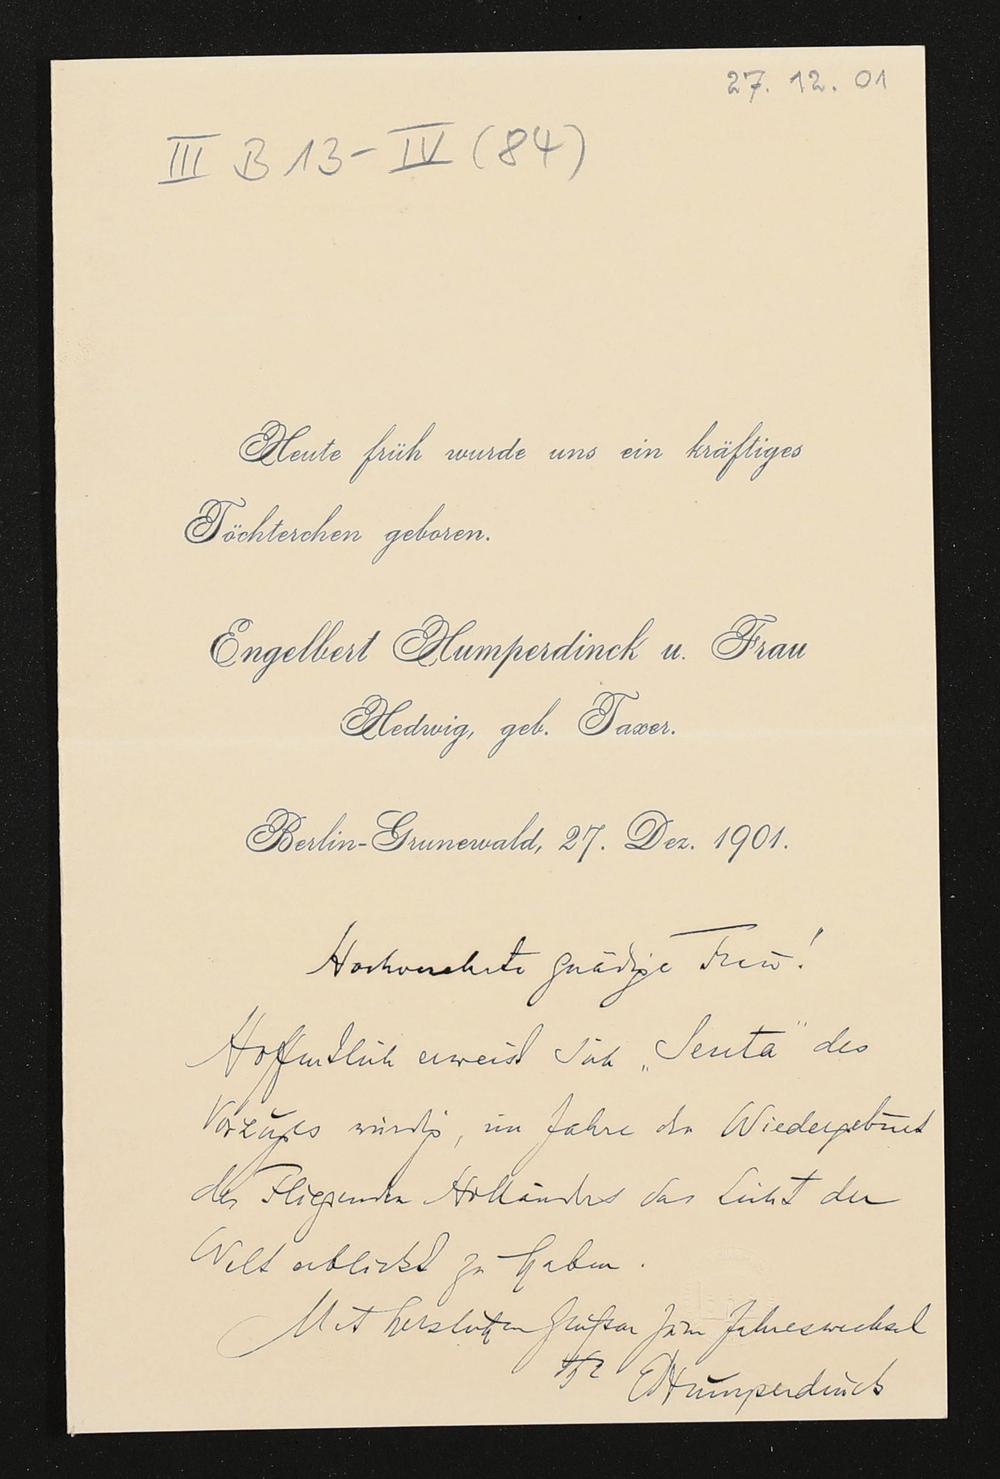 27. 12. 01
III B 13 - IV (84)
Heute früh wurde uns ein kräftiges
Töchterchen geboren.
Engelbert Humperdinck u. Frau
Hedwig, geb. Taxer.
Berlin-Grunewald, 27. Dez. 1901.
Hochverehrte gnädige Frau!
Hoffentlich erweist sich „Senta" des
Vorzuges würdig, im Jahre der Wiedergeburt
des Fliegenden Holländers das Licht der
Welt erblickt zu haben.
Mit herzlichen Grüßen zum Jahreswechsel
EHumperdinck